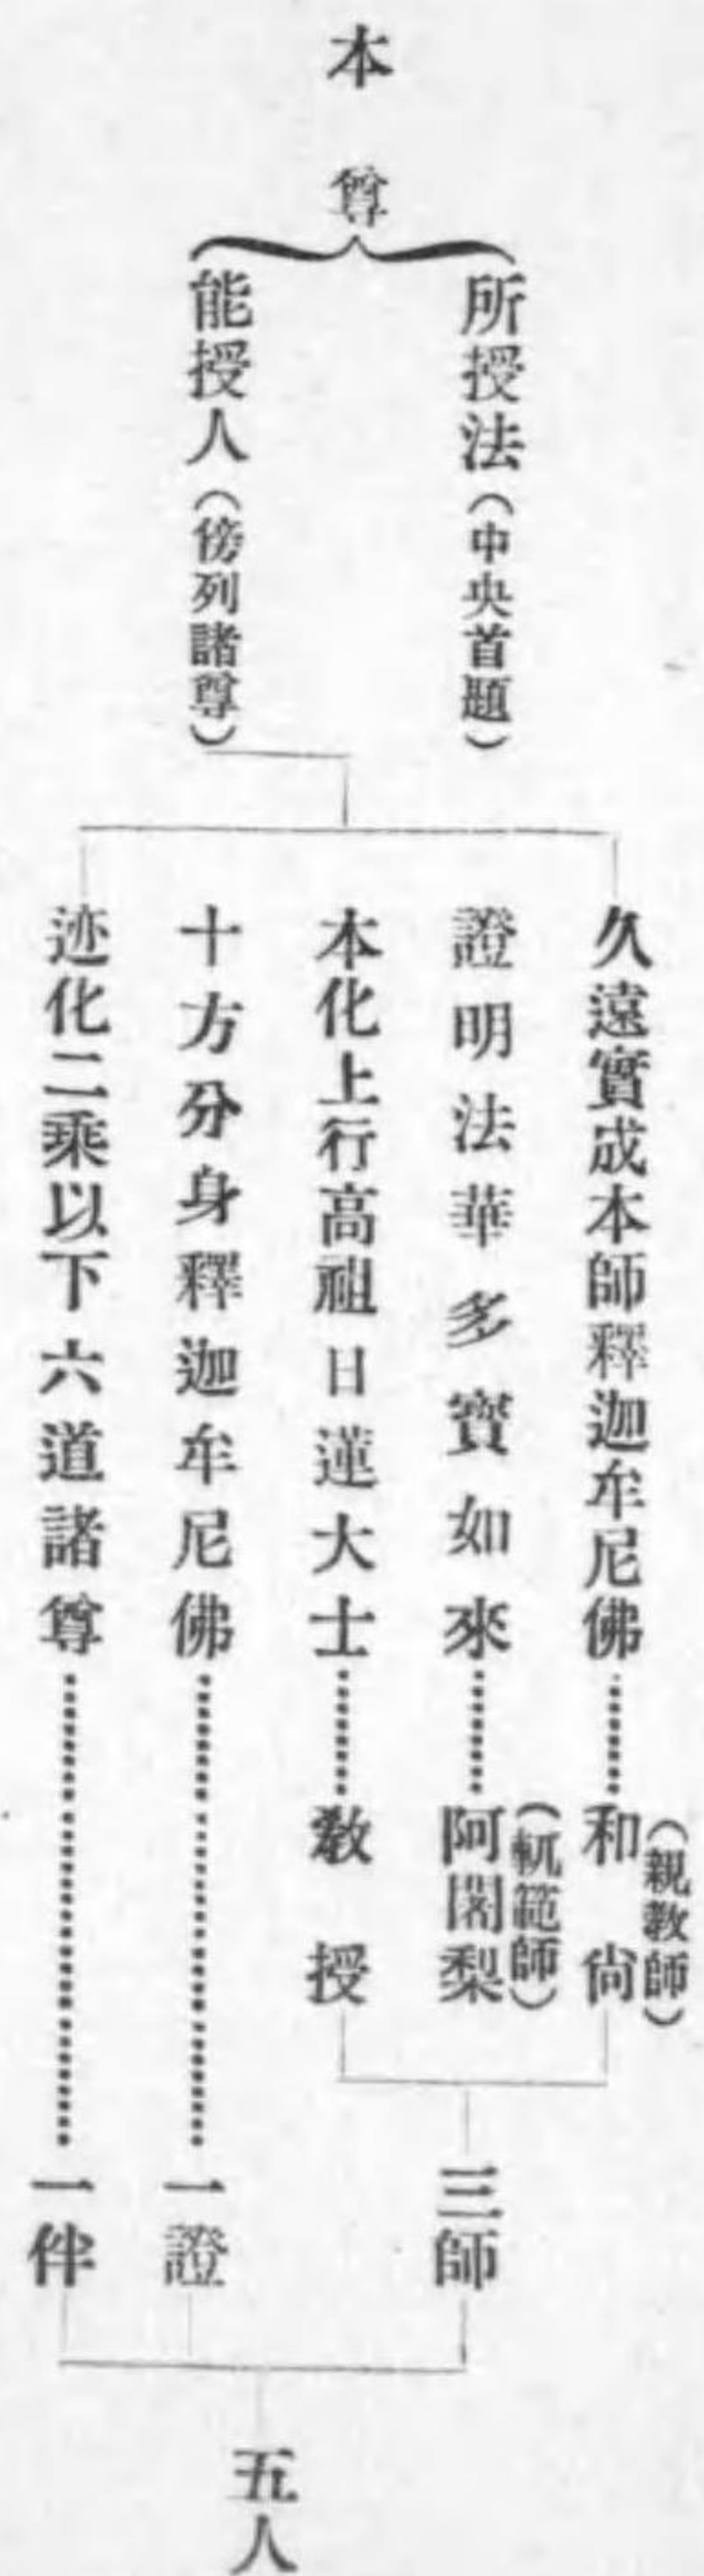 本尊
所授法（中央首題）
能授人（傍列諸尊）
久遠實成本師釋迦牟尼佛
和尙（親教師）
證明法華多寶如來
阿闍梨（軌範師）
本化上行高祖日蓮大士
教授
三師
十方分身釋迦牟尼佛
一證
迹化二乘以下六道諸尊
一伴
五人